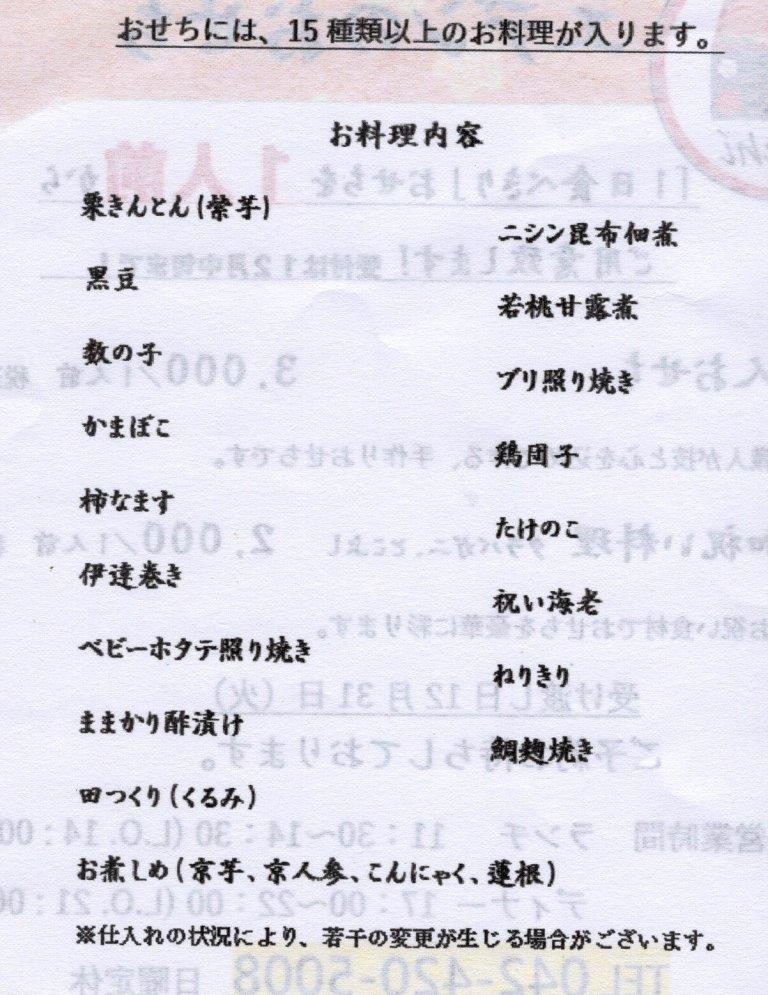 おせちには、15種類以上のお料理が入ります。
お料理内容
栗きんとん(紫芋)
黒豆
数の子
かまぼこ
柿なます
伊達巻き
ベビーホタテ照り焼き
ままかり酢漬け
田つくり(くるみ)
お煮しめ(京芋、京人参、こんにゃく、蓮根)
ニシン昆布佃煮
若桃甘露煮
ブリ照り焼き
鶏団子
たけのこ
祝い海老
ねりきり
鯛麹焼き
※仕入れの状況により、若干の変更が生じる場合がございます。